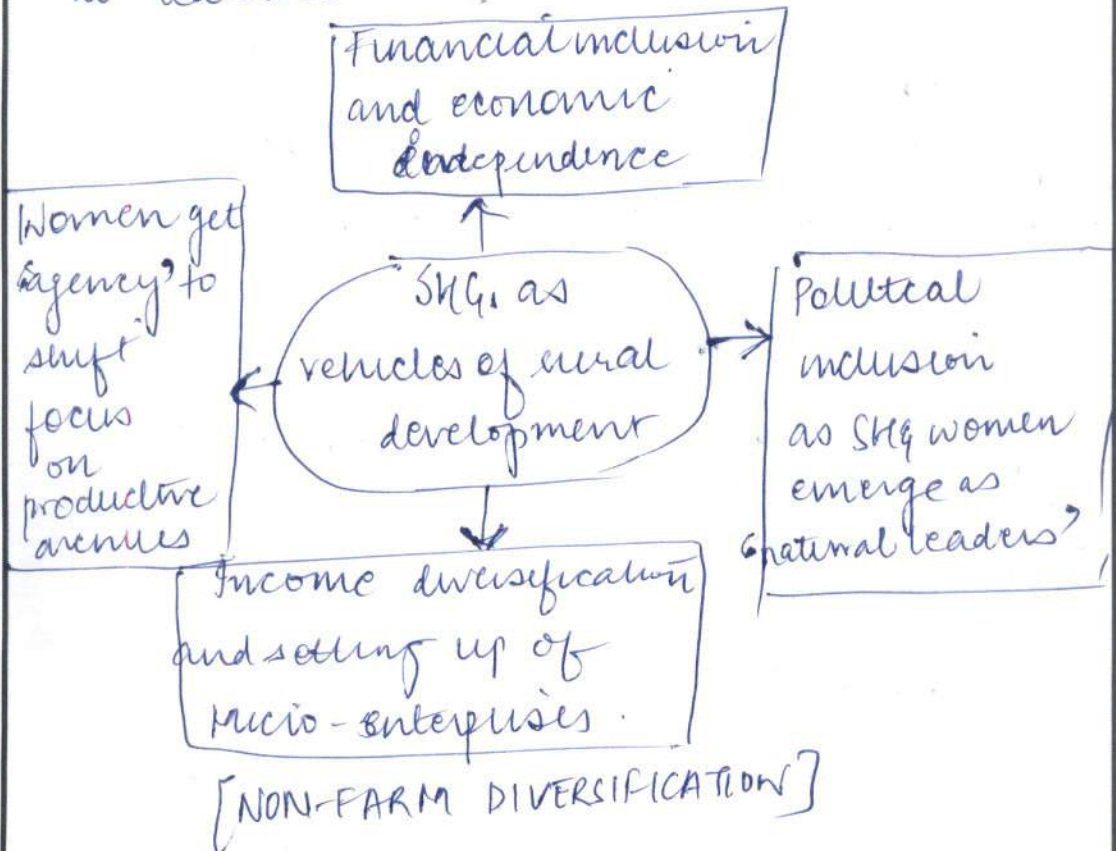 Financial inclusion
and economic
independence
Women get
'agency' to
shift
focus
on
productive
avenues
SHGs as
vehicles of rural
development
Political
inclusion
as SHG women
emerge as
'natural leaders'
Income diversification
and setting up of
Micro-enterprises.
[NON-FARM DIVERSIFICATION]